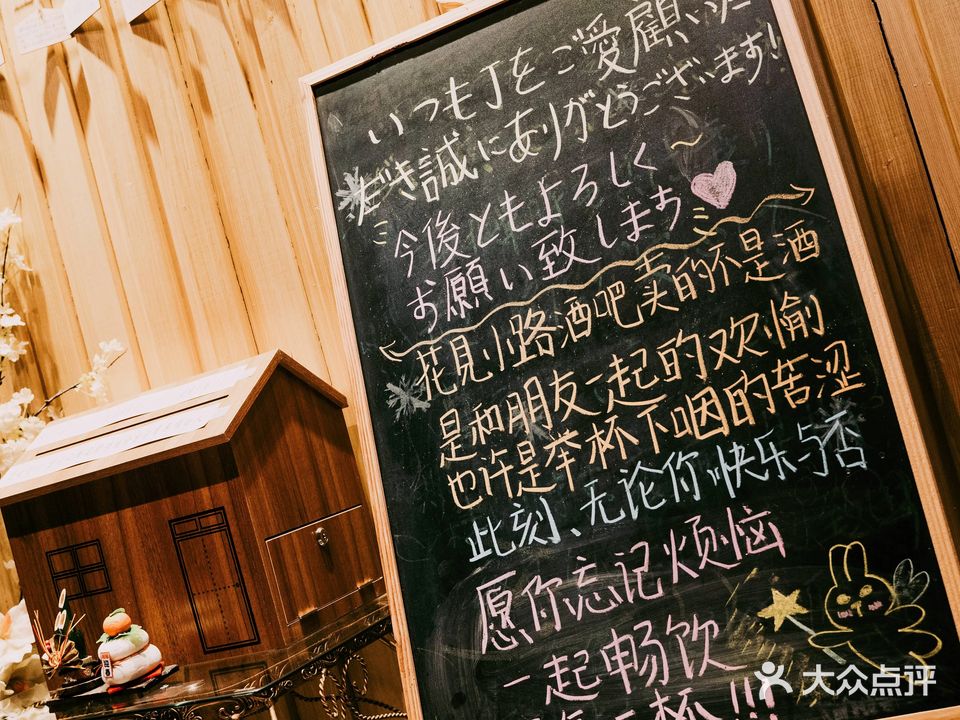 いつもJをご愛顧いた
だき誠にありがとうございます!
今後ともよろしく~
お願い致します
花見小路酒吧卖的不是酒
是和朋友一起的欢愉
也许是举杯下咽的苦涩
此刻、无论你快乐与否
愿你忘记烦恼
一起畅饮
杯!!!
大众点评